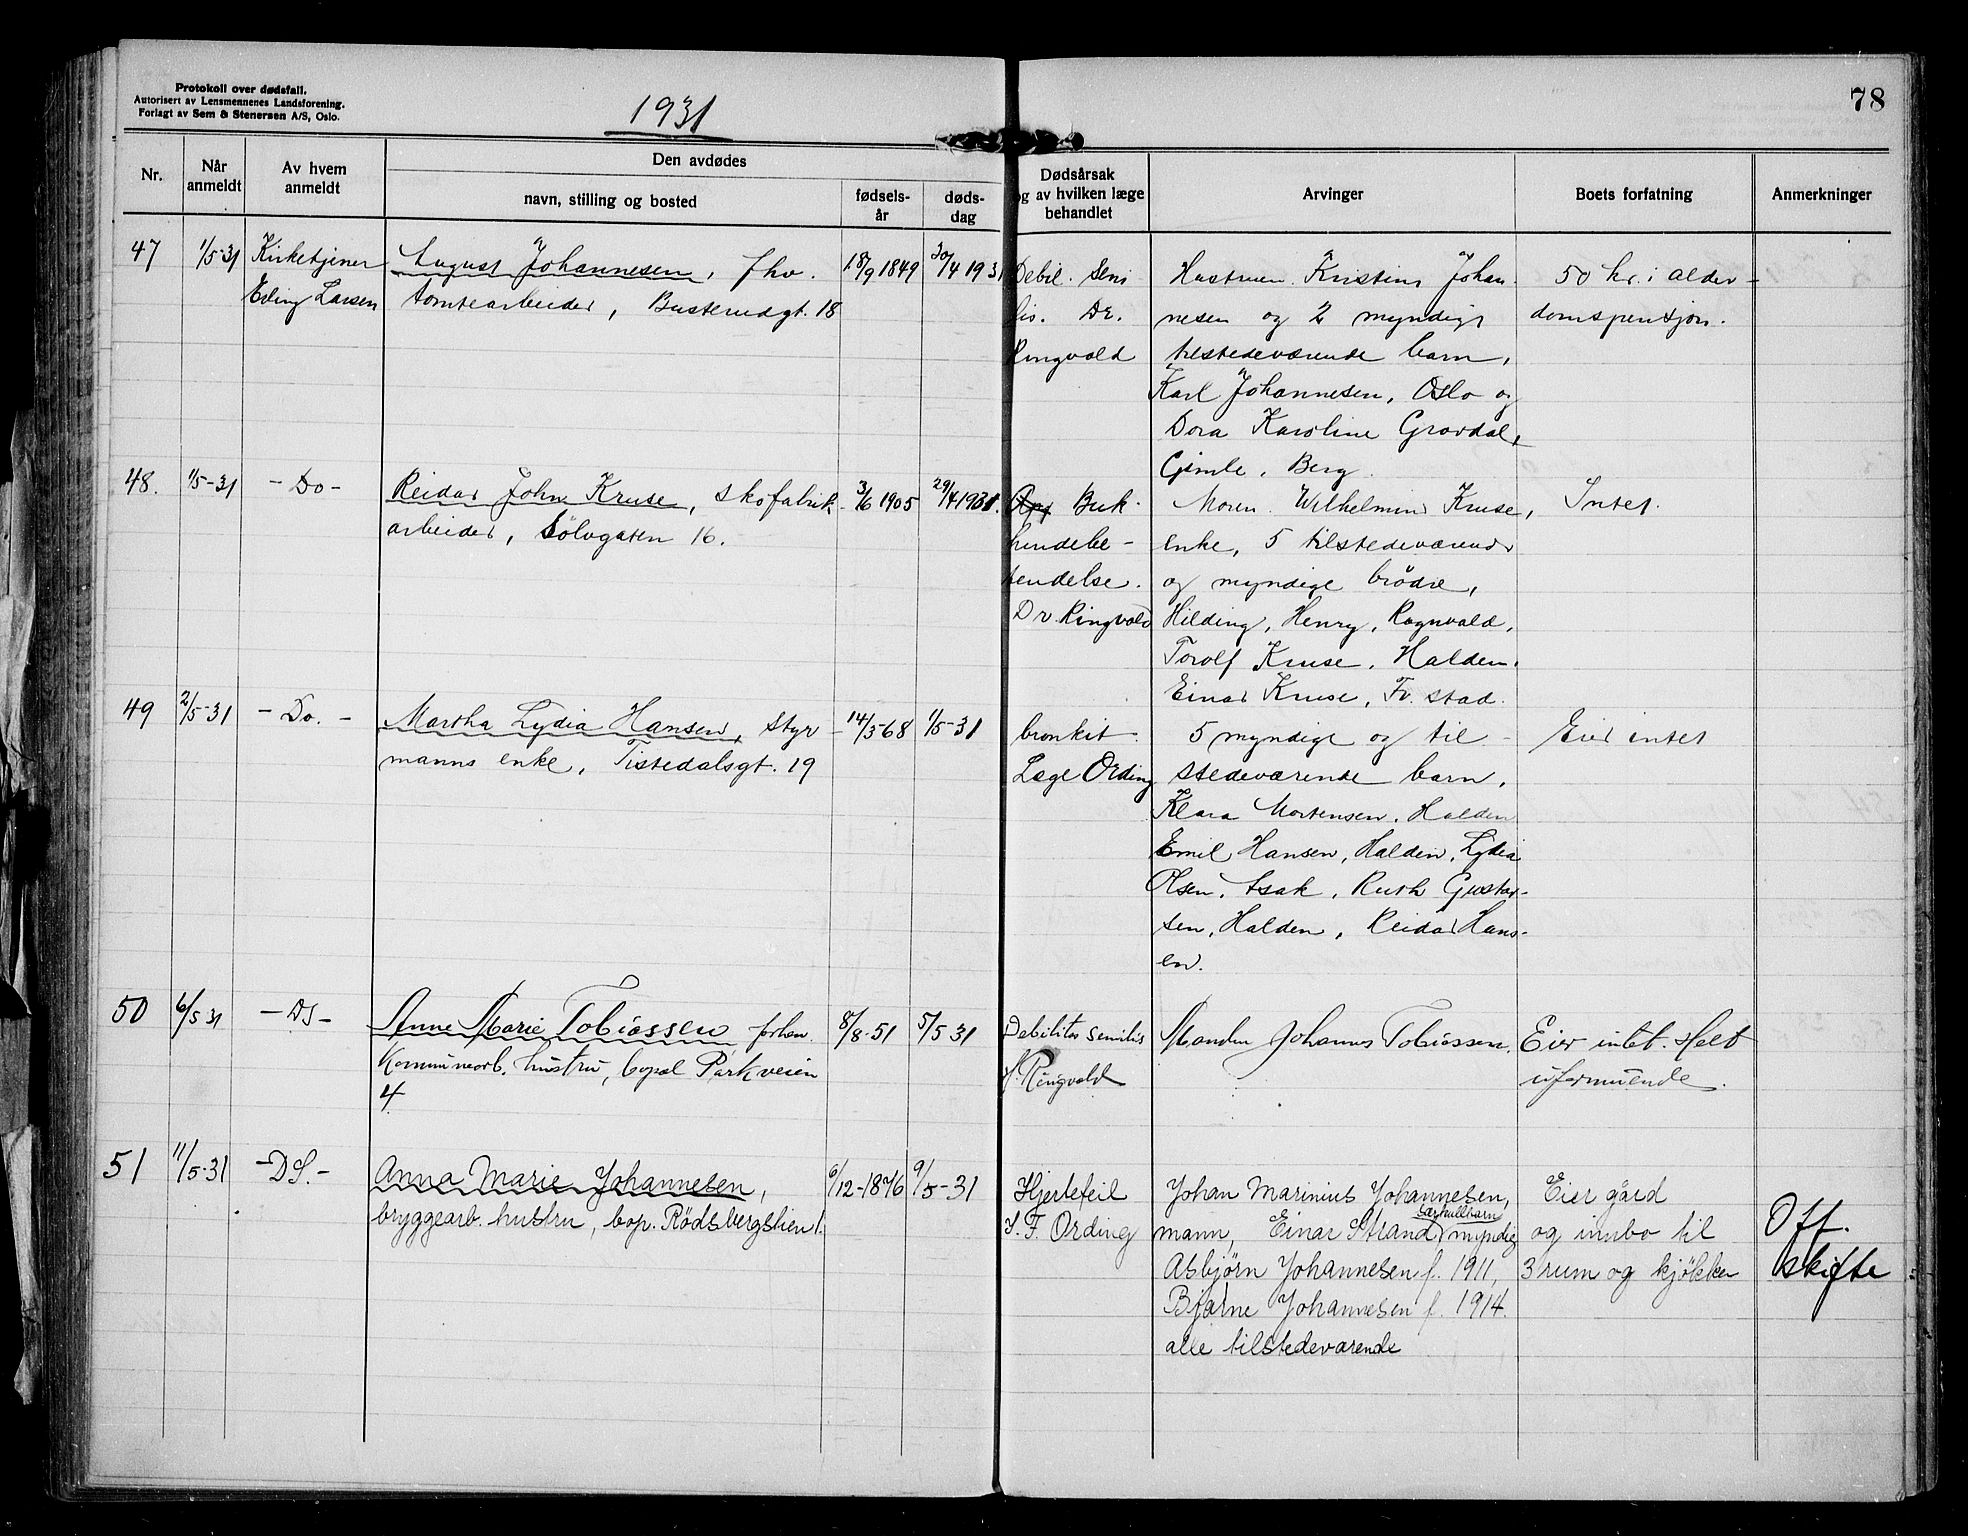 Protokoll over dødsfall.
Autorisert av Lensmennenes Landsforening.
Forlagt av Sem & Stenersen A/S, Oslo.
1931
78
Nr.
Når
anmeldt
Av hvem
anmeldt
Den avdødes
navn, stilling og bosted
fødsels-
år
døds-
dag
Dødsårsak
og av hvilken læge
behandlet
Arvinger
Boets forfatning
Anmerkninger
47
1/5-31
Kirketjener
Erling Larsen
August Johannesen, fhv.
tomtearbeider, Busterudgt. 18
18/9 1849
30/4 1931
Debil. Seni
lis. Dr.
Ringvold
Hustruen Kristine Johan-
nesen og 2 myndige
tilstedeværende barn,
Karl Johannesen, Oslo og
Dora Karoline Grovdal,
Gimle, Berg.
50 kr. i alder-
domspensjon.
48.
1/5-31
- Do -
Reidar John Kruse, skofabrik-
arbeider, Sölvgaten 16.
3/6 1905
29/4 1931.
Buk-
hindebe-
tendelse.
Dr. Ringvold
Moren Wilhelmine Kruse,
enke, 5 tilstedeværende
og myndige brödre,
Hilding, Henry, Ragnvald,
Torolf Kruse, Halden.
Einar Kruse, Fr. stad.
Intet.
49
2/5-31
- Do. -
Martha Lydia Hansen, styr-
manns enke, Tistedalsgt. 19
14/3-68
1/5-31
bronkit.
Læge Ording
5 myndige og til-
stedeværende barn,
Klara Mortensen, Halden
Emil Hansen, Halden, Lydia
Olsen, Isak, Ruth Gustav-
sen, Halden, Reidar Hans-
en.
Eier intet
50
6/5 31
- DS -
Anne Marie Tobiassen forhen.
Kommunearb. hustru, bopæl Parkveien
4
8/8-51
5/5 31
Debilitas senilis
Ringvold
Manden Johannes Tobiassen.
Eier intet. Helt
uformuende.
51
11/5-31
- DS. -
Anna Marie Johannesen,
bryggearb. hustru, bop. Rödsbergslien 1.
6/12-1876
9/5-31
Hjertefeil
F. Ording
Johan Marinius Johannesen,
særkullbarn
mann, Einar Strand myndig
Asbjørn Johannesen f. 1911,
Bjarne Johannesen f. 1914.
alle tilstedeværende
Eier gård
og innbo til
3 rum og kjökken
Off.
skifte